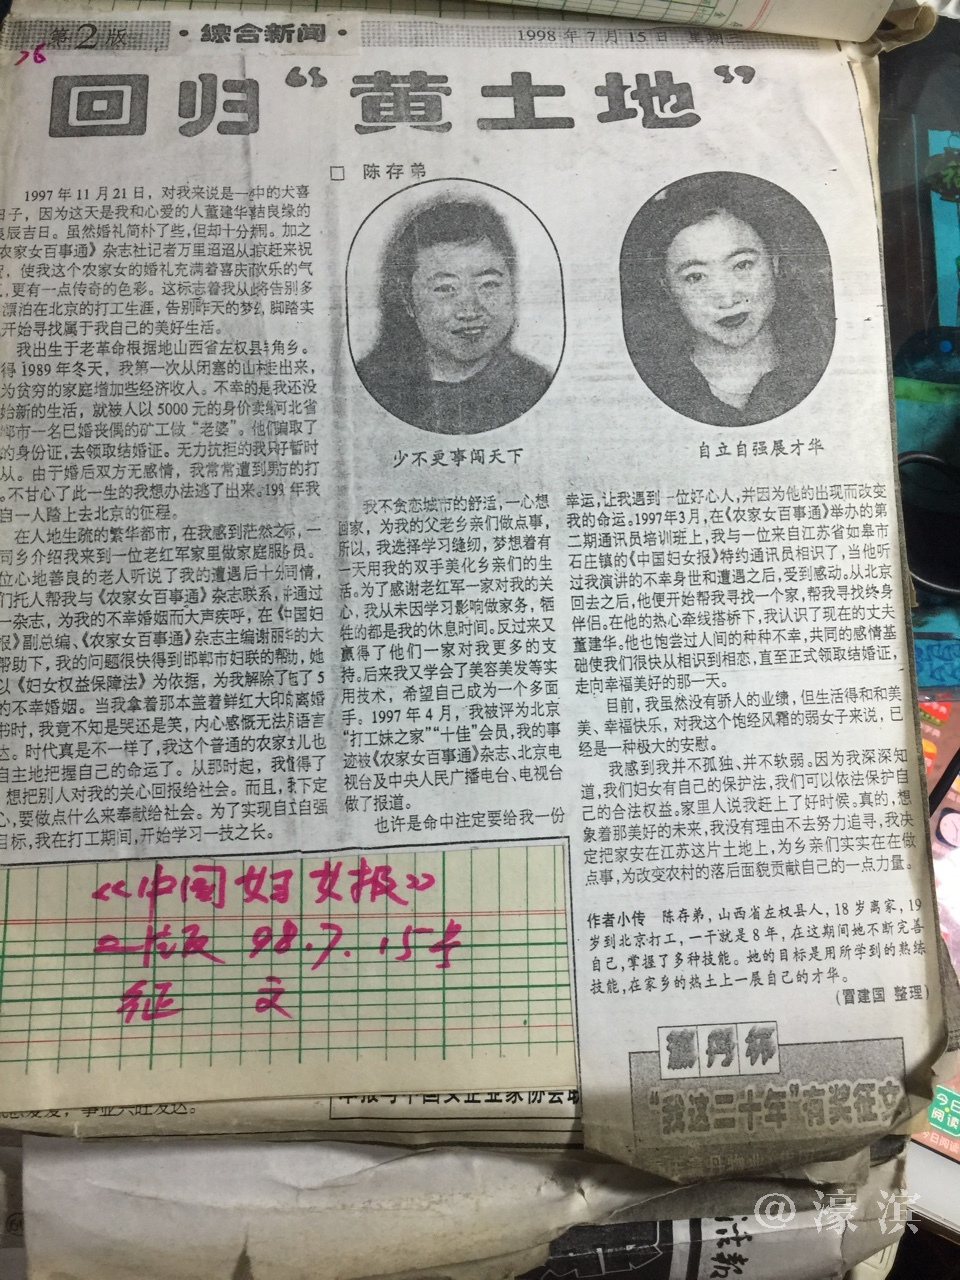 第2版
·综合新闻·
1998年7月15日 星期三
76
回归“黄土地”
□ 陈存弟
1997年11月21日，对我来说是一中的大喜
日子，因为这天是我和心爱的人董建华结良缘的
良辰吉日。虽然婚礼简朴了些，但却十分
加之
农家女百事通》杂志社记者万里迢迢从京赶来祝
贺，使我这个农家女的婚礼充满着喜庆欢乐的气
，更有一点传奇的色彩。这标志着我从此将告别多
漂泊在北京的打工生涯，告别昨天的梦幻，脚踏实
开始寻找属于我自己的美好生活。
我出生于老革命根据地山西省左权县
角乡。
得1989年冬天，我第一次从闭塞的山村走出来，
为贫穷的家庭增加些经济收入。不幸的是我还没
始新的生活，就被人以5000元的身价卖给河北省
邯郸市一名已婚丧偶的矿工做“老婆”。他们骗取了
的身份证，去领取结婚证。无力抗拒的我只好暂时
从。由于婚后双方无感情，我常常遭到男方的打
。不甘心了此一生的我想办法逃了出来。199
年我
自一人踏上去北京的征程。
在人地生疏的繁华都市，在我感到茫然之际，一
同乡介绍我来到一位老红军家里做家庭服务员。
位心地善良的老人听说了我的遭遇后十分同情，
们托人帮我与《农家女百事通》杂志联系，并通过
一杂志，为我的不幸婚姻而大声疾呼，在《中国妇
报》副总编、《农家女百事通》杂志主编谢丽华的大
帮助下，我的问题很快得到邯郸市妇联的帮助，她
以《妇女权益保障法》为依据，为我解除了包了5
的不幸婚姻。当我拿着那本盖着鲜红大印的离婚
书时，我竟不知是哭还是笑，内心感慨无法用语言
达。时代真是不一样了，我这个普通的农家女儿也
自主地把握自己的命运了。从那时起，我懂得了
想把别人对我的关心回报给社会。而且，我下定
心，要做点什么来奉献给社会。为了实现自立自强
目标，我在打工期间，开始学习一技之长。
少不更事闯天下
自立自强展才华
我不贪恋城市的舒适，一心想
回家，为我的父老乡亲们做点事，
所以，我选择学习缝纫，梦想着有
一天用我的双手美化乡亲们的生
活。为了感谢老红军一家对我的关
心，我从未因学习影响做家务，牺
牲的都是我的休息时间。反过来又
赢得了他们一家对我更多的支
持。后来我又学会了美容美发等实
用技术，希望自己成为一个多面
手。1997年4月，我被评为北京
“打工妹之家”“十佳”会员，我的事
迹被《农家女百事通》杂志、北京电
视台及中央人民广播电台、电视台
做了报道。
也许是命中注定要给我一份
幸运，让我遇到一位好心人，并因为他的出现而改变
我的命运。1997年3月，在《农家女百事通》举办的第
二期通讯员培训班上，我与一位来自江苏省如皋市
石庄镇的《中国妇女报》特约通讯员相识了，当他听
过我演讲的不幸身世和遭遇之后，受到感动。从北京
回去之后，他便开始帮我寻找一个家，帮我寻找终身
伴侣。在他的热心牵线搭桥下，我认识了现在的丈夫
董建华。他也饱尝过人间的种种不幸，共同的感情基
础使我们很快从相识到相恋，直至正式领取结婚证，
走向幸福美好的那一天。
目前，我虽然没有骄人的业绩，但生活得和和美
美、幸福快乐，对我这个饱经风霜的弱女子来说，已
经是一种极大的安慰。
我感到我并不孤独、并不软弱。因为我深深知
道，我们妇女有自己的保护法，我们可以依法保护自
己的合法权益。家里人说我赶上了好时候。真的，想
象着那美好的未来，我没有理由不去努力追寻，我决
定把家安在江苏这片土地上，为乡亲们实实在在做
点事，为改变农村的落后面貌贡献自己的一点力量。
作者小传 陈存弟，山西省左权县人，18岁离家，19
岁到北京打工，一干就是8年，在这期间她不断完善
自己，掌握了多种技能。她的目标是用所学到的熟练
技能，在家乡的热土上一展自己的才华。
（冒建国 整理）
《中国妇女报》
二版 98.7.15号
征文
丹杯
“我这二十年”有奖征文
事业兴旺发达。
本报与中国女企业家协会联
今日
阅读
今日阅读
法报
@濠滨